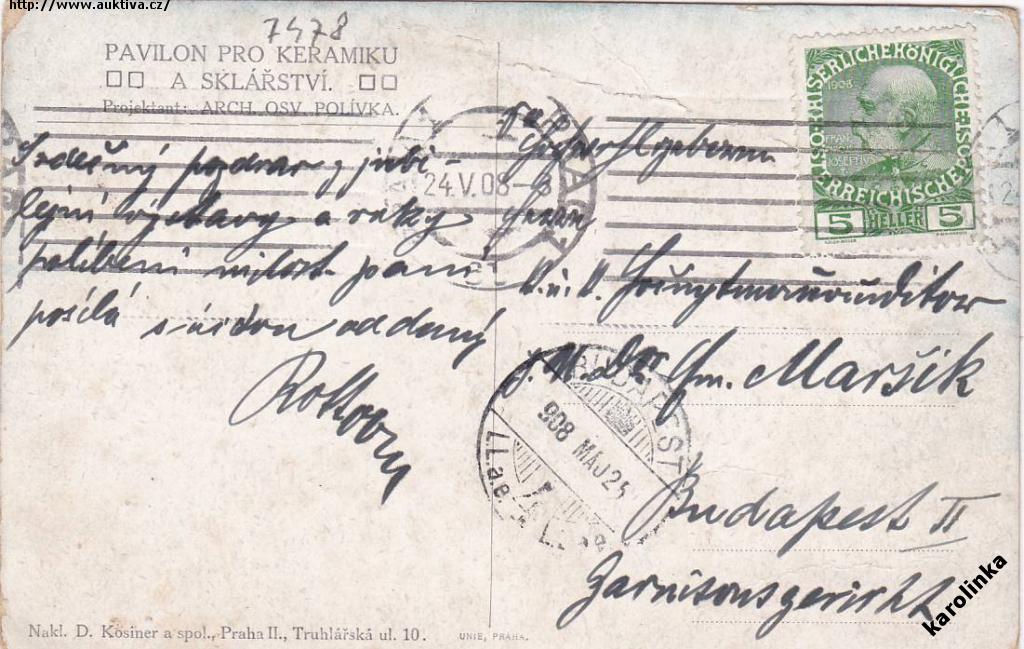 http://www.auktiva.cz/
7478
PAVILON PRO KERAMIKU
A SKLÁŘSTVÍ.
Projektant: ARCH. OSV. POLÍVKA.
Srdečný pozdrav z jubi-
lejní výstavy a ruky
políbení milost. paní
posílá s úctou oddaný
24.V.08
1908
KAISERLICHEKÖNIGLICHE
ÖSTERREICHISCHE
5 HELLER 5
Hochwohlgeboren
Herrn
k. u. k. Hauptmannauditor
J. U. Dr. Em. Maršík
BUDAPEST
908 MÁJ 25
Budapest II
Garnisonsgericht
Nakl. D. Kosiner a spol., Praha II., Truhlářská ul. 10.
UNIE, PRAHA.
karolinka